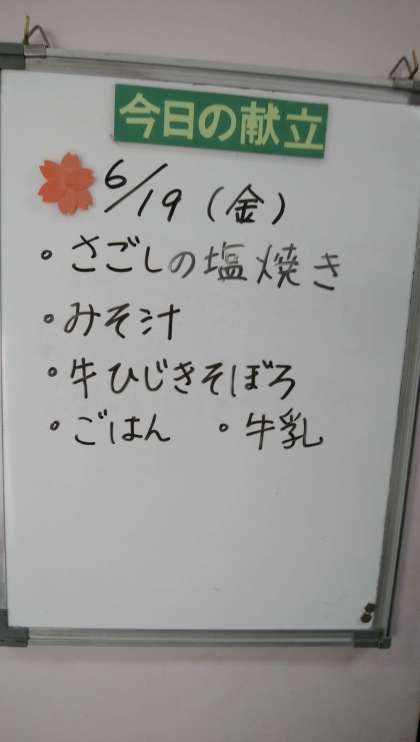 今日の献立
6/19（金）
・さごしの塩焼き
・みそ汁
・牛ひじきそぼろ
・ごはん ・牛乳